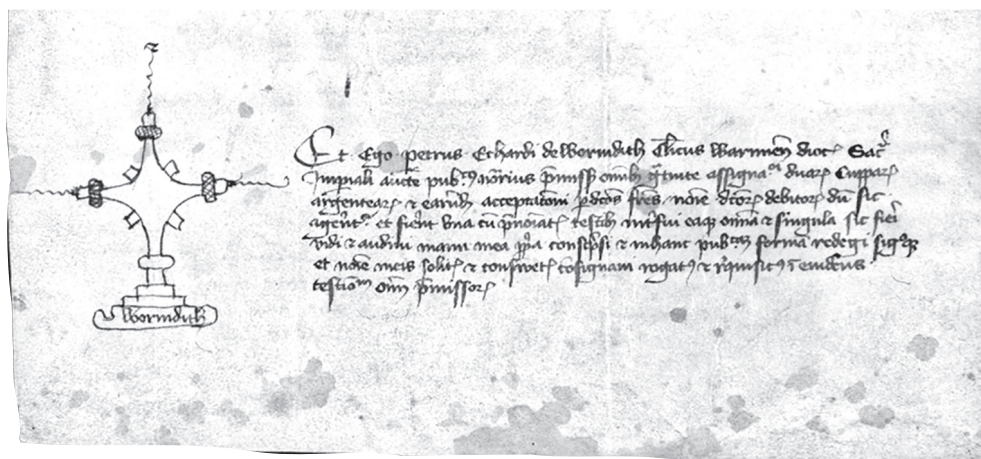 Et Ego petrus Echardi de Wormdith Clicus Warmien dioc Sac
Imperiali aucte pub nõrius pmiss omib assigna duar Cuppar
argentear & earund acceptaconi p dcos fres noie dcor debitor dũ sic
agerent et fierent vna cu pnoiat testib intfui eaq omia & singula sic fieri
vidi & audiui manu mea ppa conscpsi & inhanc pub formã redegi sigq
et noie meis solit & consuet cosignaui rogat & rquisit i euidens
testiom oim pmissor
Wormdith